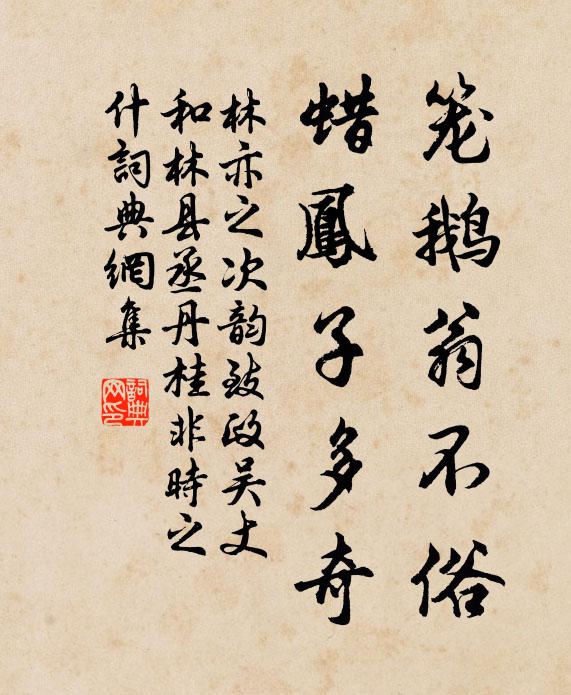 笼鹅翁不俗
蜡鳳子多奇
林亦之次韵致政吴丈
和林县丞丹桂非時之
什詞典網集
詞典网印